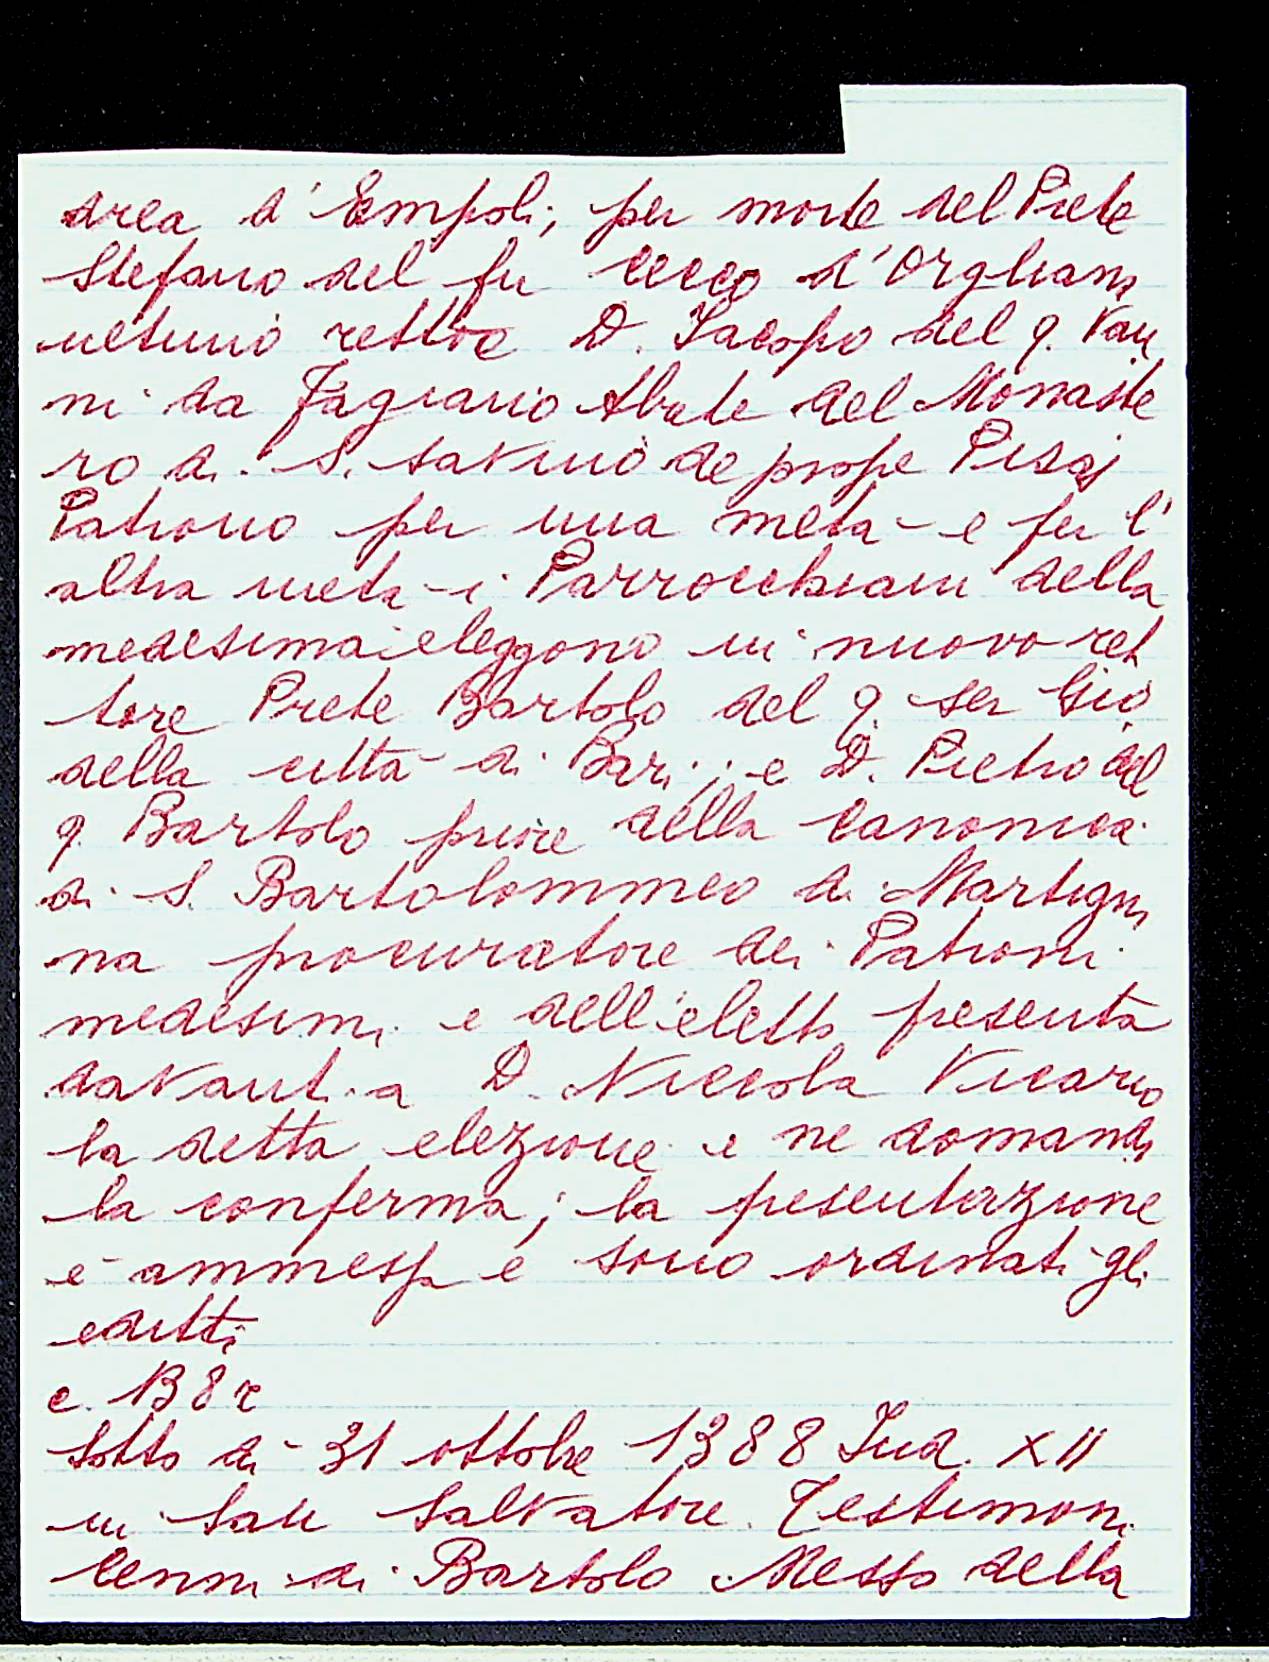 drea d'Empoli; per morte del Prete
Stefano del fu Cecco d'Orgliano
ultimo rettore D. Iacopo del q. Van
ni da Fagiano Abate del Monaste
ro di S. Savino de prope Pisaj
Patrono per una metà e per l'
altra metà i Parrocchiani della
medesima eleggono in nuovo ret
tore Prete Bartolo del q. Ser Gio
della città di Bari; e D. Pietro del
q. Bartolo priore della Canonica
di S. Bartolommeo di Martigna
na procuratore dei Patroni
medesimi e dell'eletto presenta
davanti a D. Niccola Vicario
la detta elezione e ne domanda
la conferma; la presentazione
è ammessa e sono ordinati gli
editti
c. 138 r
Sotto dì 31 ottobre 1388 Ind. XII
in San Salvatore. Testimoni
Cenni di Bartolo Messo della